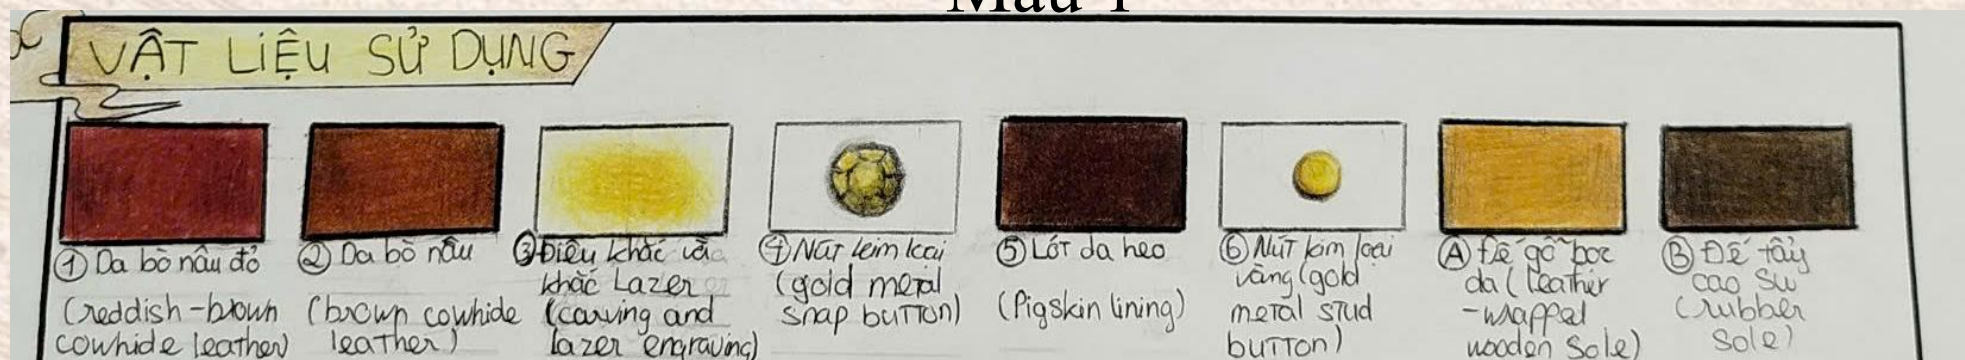 Mẫu 1
VẬT LIỆU SỬ DỤNG
① Da bò nâu đỏ
(reddish-brown
cowhide leather)
② Da bò nâu
(brown cowhide
leather)
③ Điêu khắc và
khắc Lazer
(carving and
lazer engraving)
④ Nút kim loại
(gold metal
snap button)
⑤ Lót da heo
(Pigskin lining)
⑥ Nút kim loại
vàng (gold
metal stud
button)
Ⓐ Đế gỗ bọc
da (leather
-wrapped
wooden sole)
Ⓑ Đế tẩy
cao su
(rubber
sole)